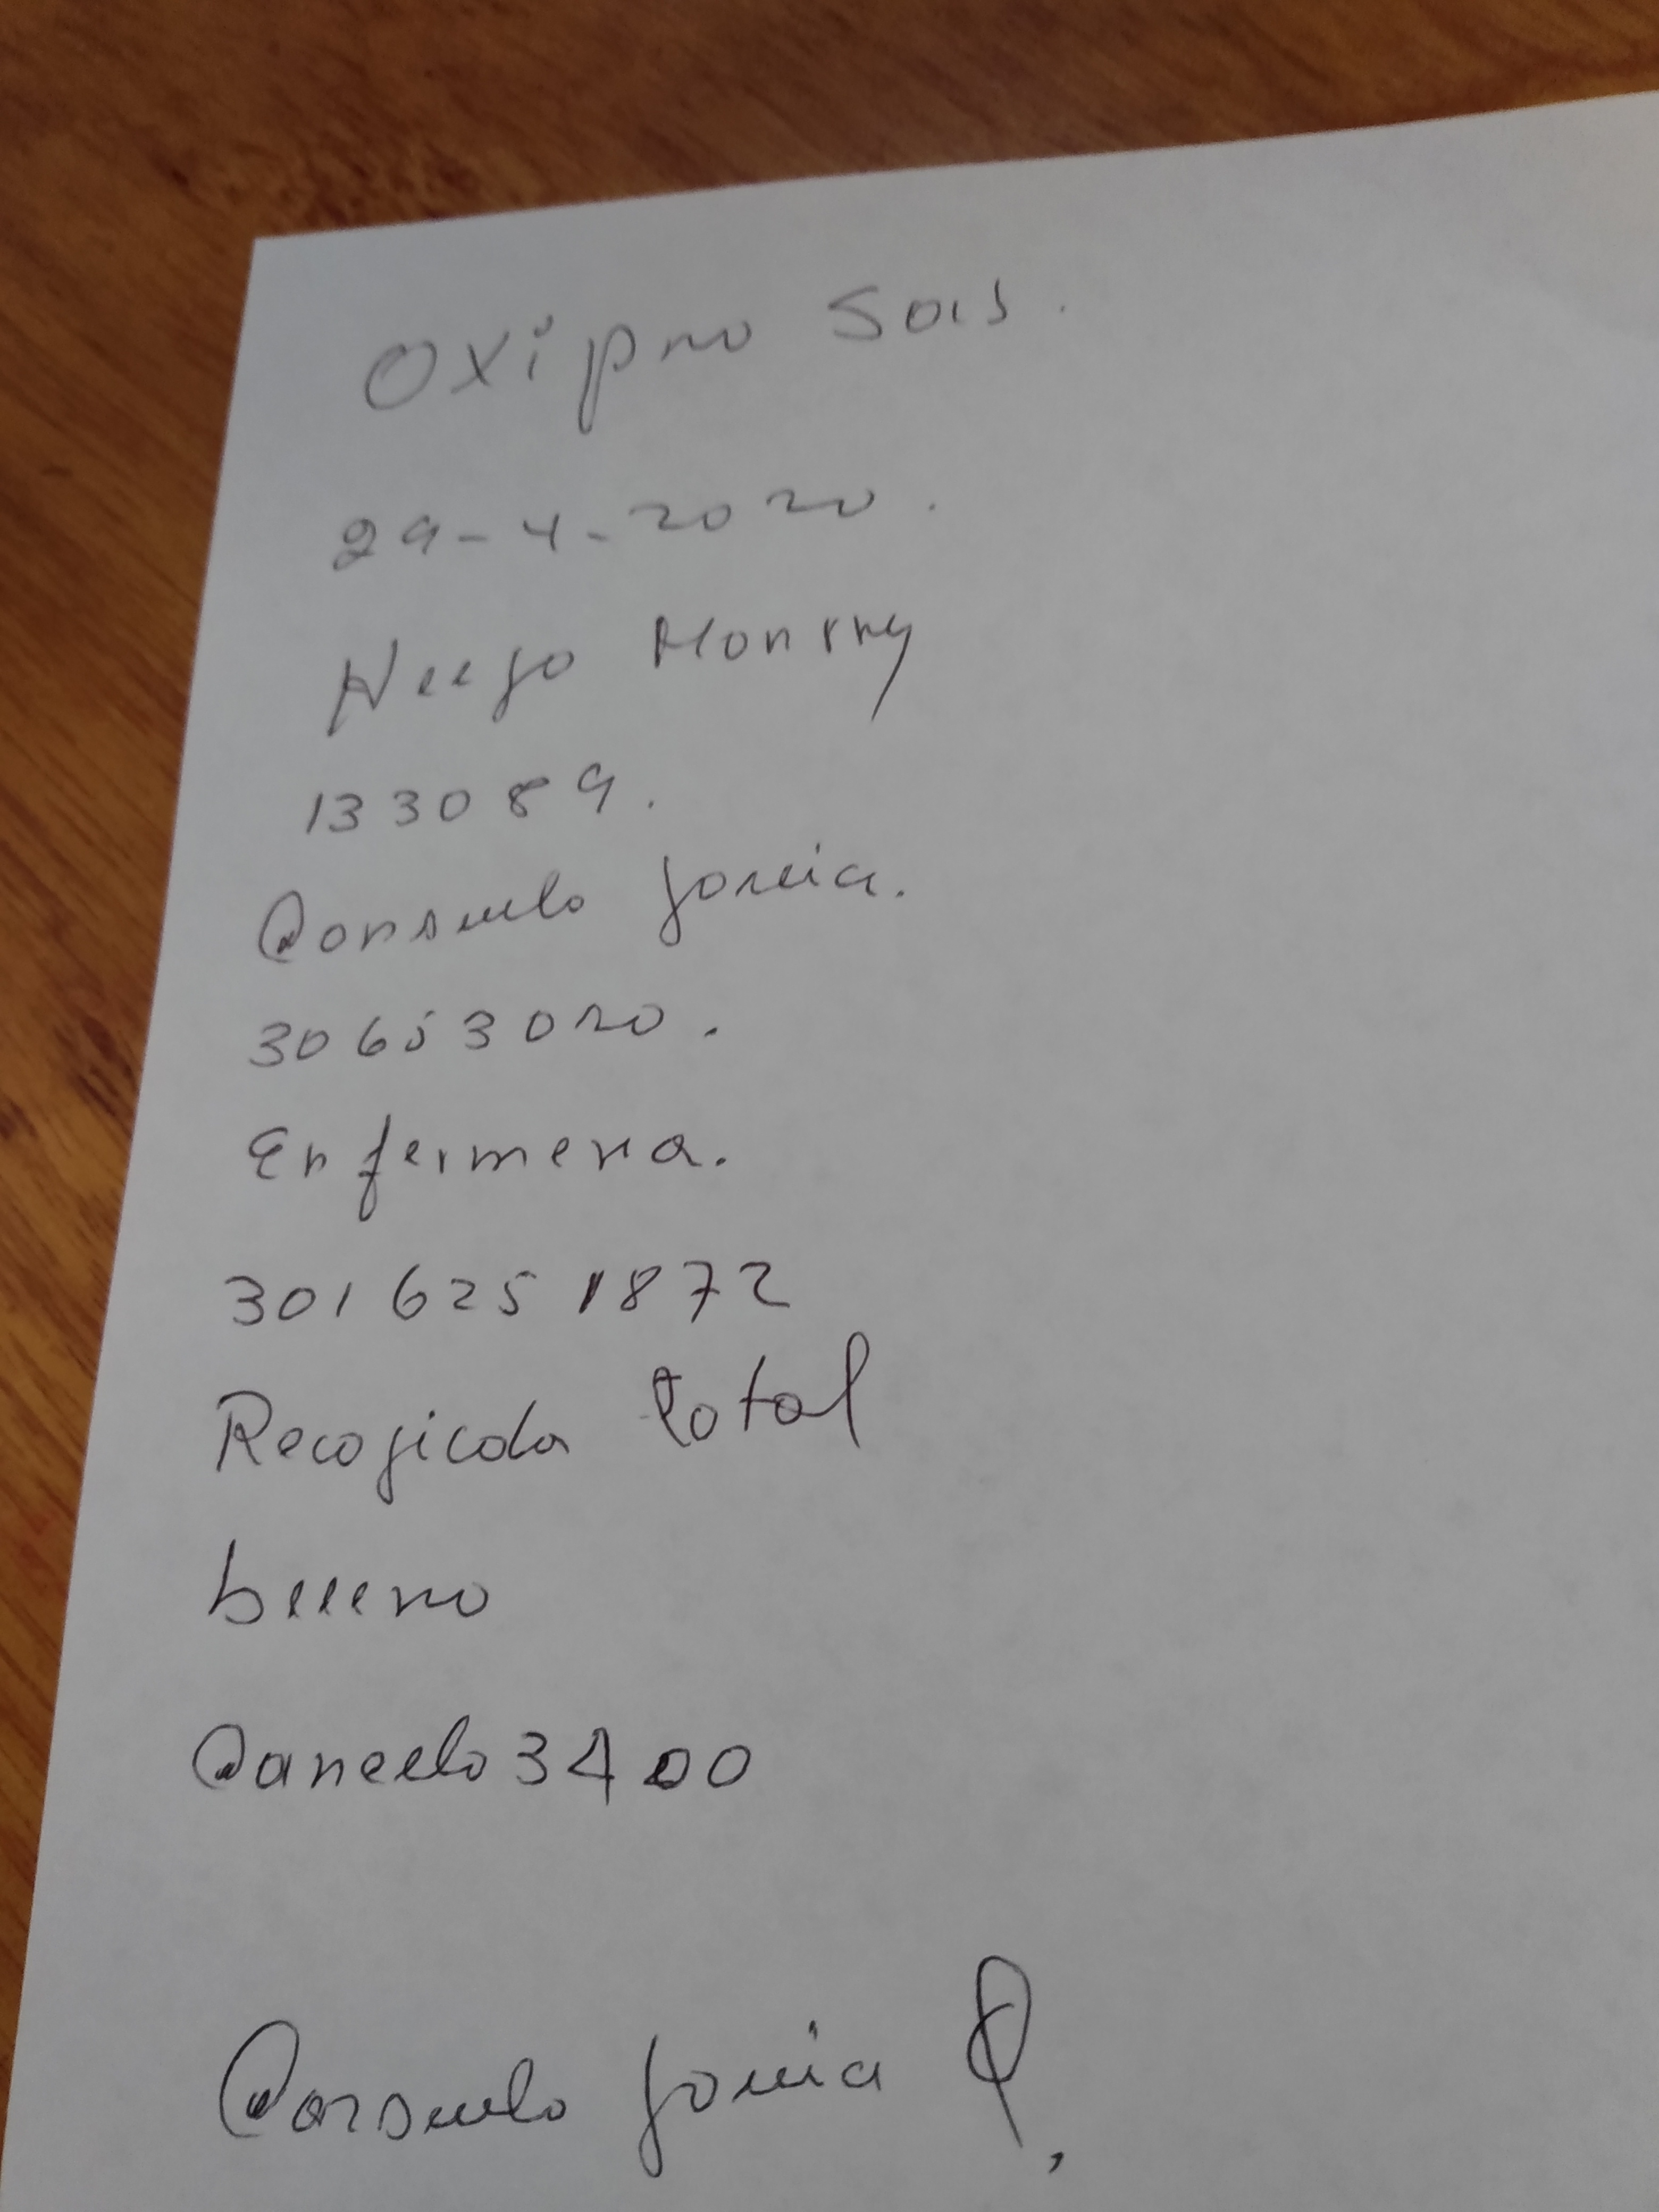 Oxipro Sas.
29-4-2020.
Hugo Monrry
133089.
Consuelo Garcia.
30653020.
Enfermera.
301 625 1872
Recogida total
bueno
Cancelo 3400
Consuelo Garcia Q,